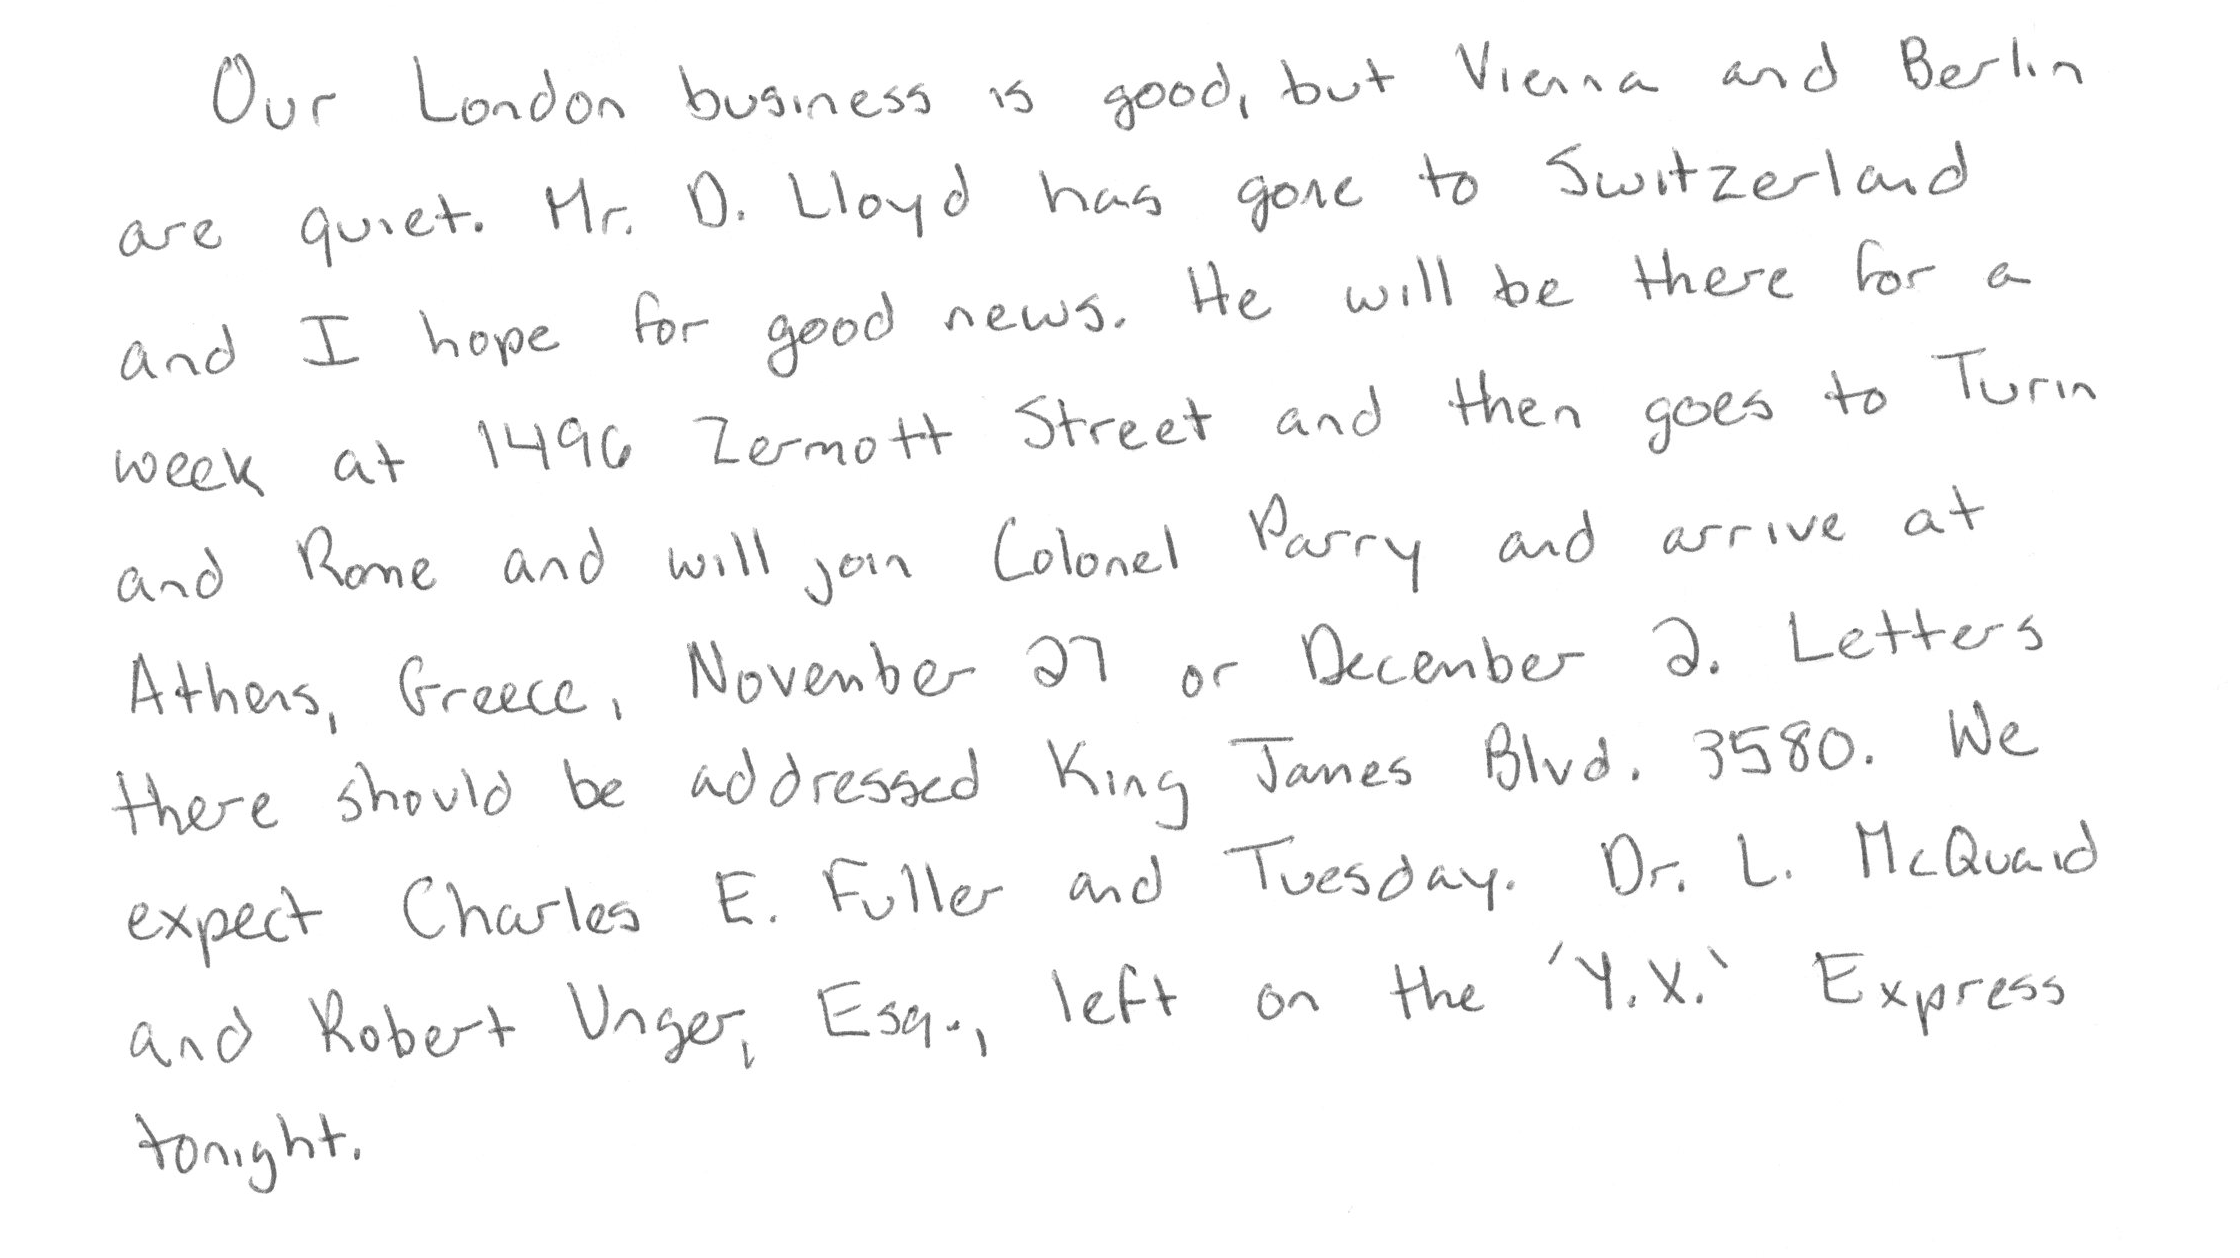 Our London business is good, but Vienna and Berlin
are quiet. Mr. D. Lloyd has gone to Switzerland
and I hope for good news. He will be there for a
week at 1496 Zermott Street and then goes to Turin
and Rome and will join Colonel Parry and arrive at
Athens, Greece, November 27 or December 2. Letters
there should be addressed King James Blvd. 3580. We
expect Charles E. Fuller and Tuesday. Dr. L. McQuaid
and Robert Unger, Esq., left on the 'Y.X.' Express
tonight.